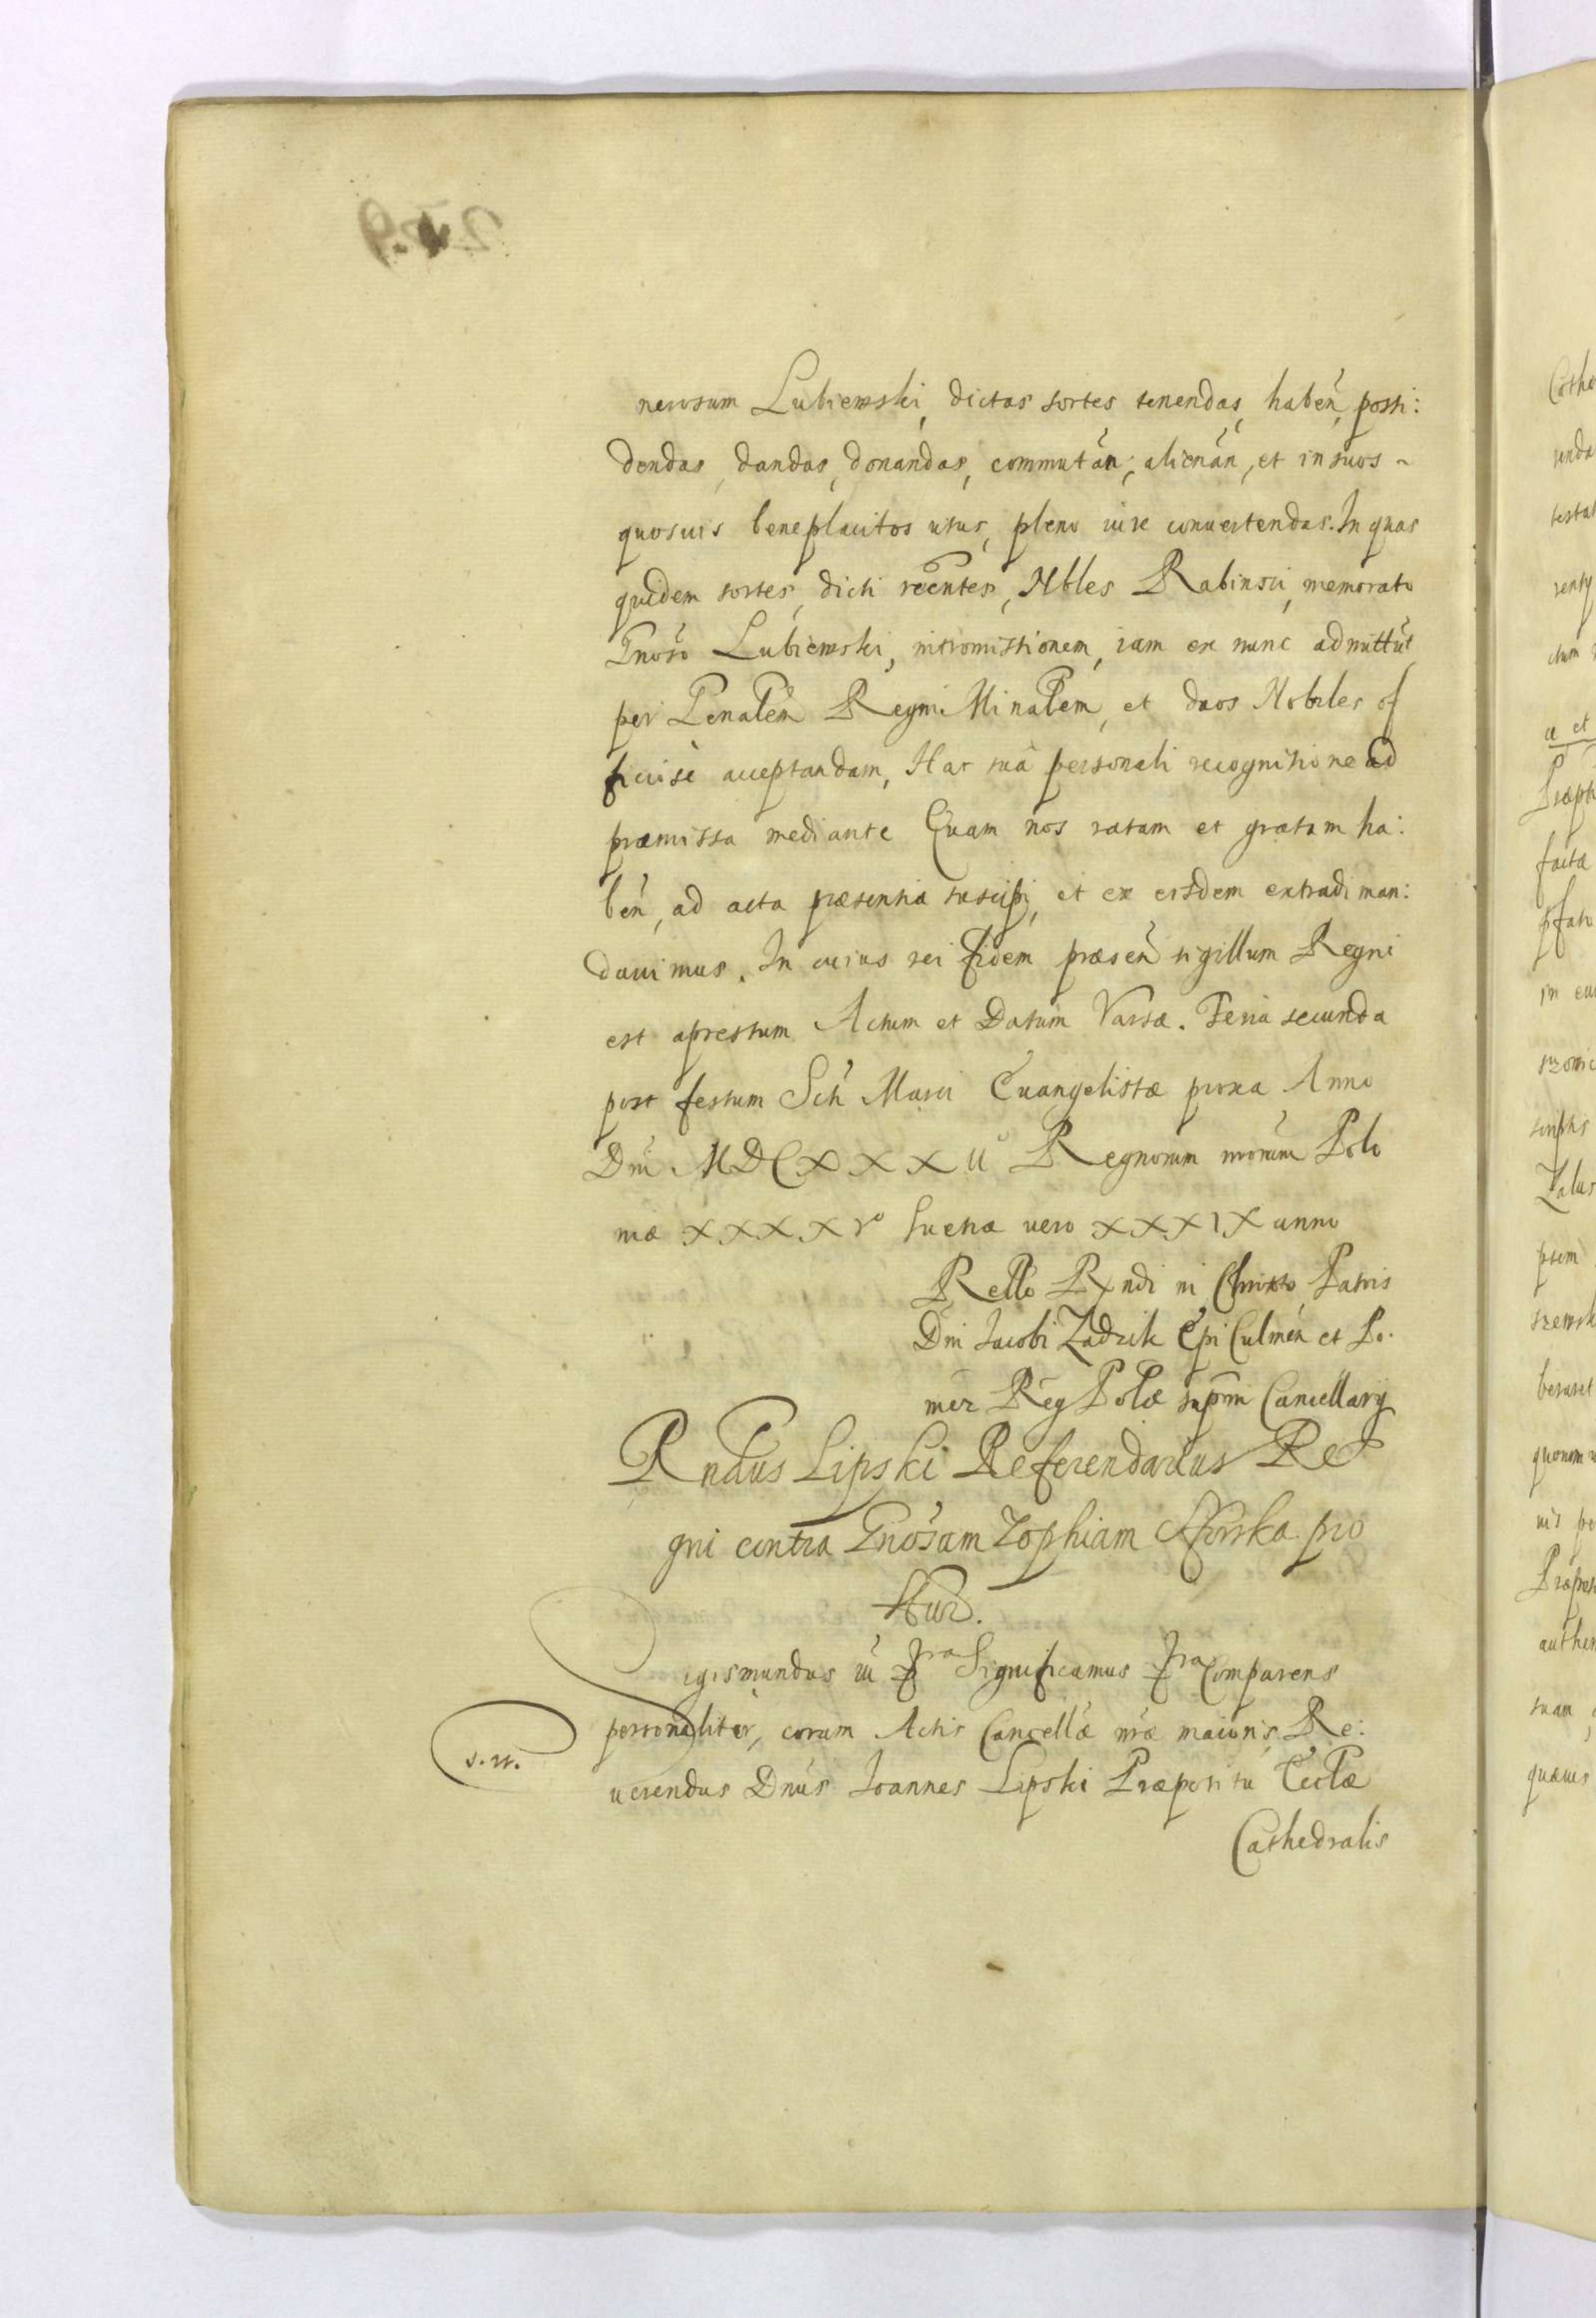 nerosum Lubiewski, dictas sortes tenendas, habeń, possi:
dendas, dandas, donandas, commutań, alienań, et in suos
quosuis beneplacitos usus, pleno iure conuertendas. In quas
quidem sortes, dicti rcentes, Nbles Rabinsci, memorato
Gnoso Lubiewski, intromissionem, iam ex nunc admittut
per Genalem Regni Minalem, et duos Nobiles of
ficiose acceptandam, Hac sua personali recognitione ad
præmissa mediante Quam nos ratam et gratam ha:
beń, ad acta præsentia suscipi, et ex eisdem extradi man:
dauimus. In cuius rei fidem præseń sigillum Regni
est apressum Actum et Datum Varsæ. Feria secunda
post festum Scti Marci Euangelistæ proxa Anno
Dni MDCXXXII Regnorum nrorum Polo
niæ XXXXVº Sueciæ vero XXXIX anno
Rello Rndi in Christo Patris
Dni Jacobi Zadzik Epi Culmeń et Po.
mez Reg Polæ supmi Cancellarij
Rndus Lipski Referendarius Re
gni contra Gnosam Zophiam pro
igismundus iii Significamus Comparens
personaliter, coram Actis Cancellæ nræ maioris, Re:
s. n.
uerendus Dnus Joannes Lipski Præpositu Eccłæ
Cathedralis